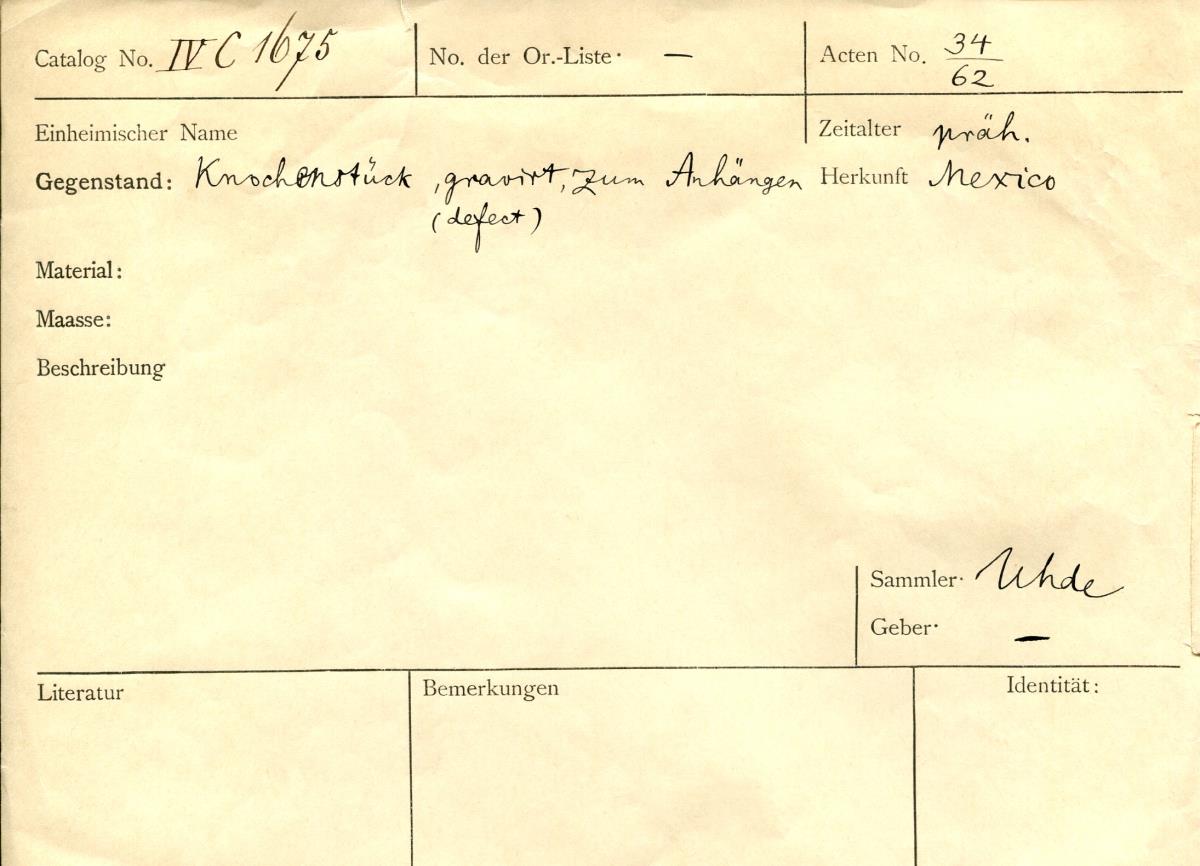 Catalog No. IV C 1675 No. der Or.-Liste. — Acten No. 34/62
Einheimischer Name Zeitalter präh.
Gegenstand: Knochenstück, gravirt, zum Anhängen Herkunft Mexico
(defect)
Material:
Maasse:
Beschreibung
Sammler. Uhde
Geber. —
Literatur Bemerkungen Identität: